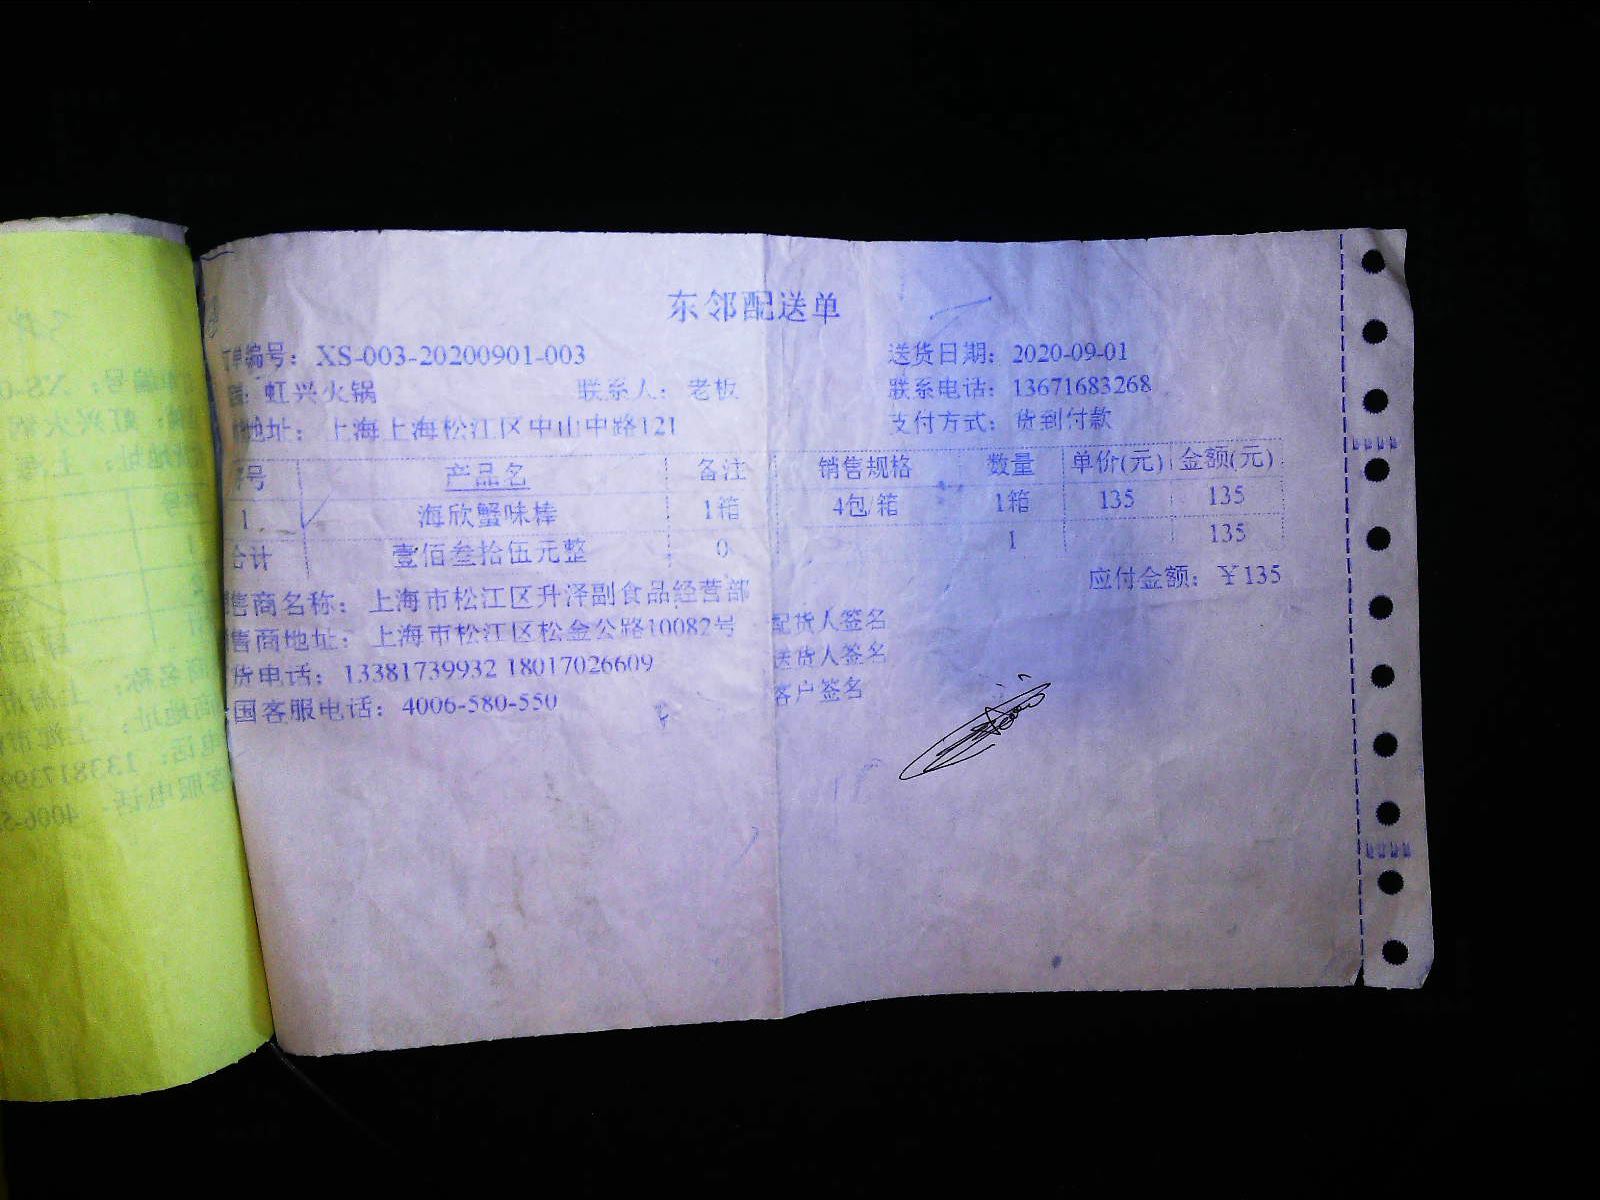 东邻配送单
订单编号：XS-003-20200901-003 送货日期：2020-09-01
虹兴火锅 联系人：老板 联系电话：13671683268
地址：上海上海松江区中山中路121 支付方式：货到付款
序号 产品名 备注 销售规格 数量 单价(元) 金额(元)
1 海欣蟹味棒 1箱 4包/箱 1箱 135 135
合计 壹佰叁拾伍元整 0 1 135
应付金额：￥135
售商名称：上海市松江区升泽副食品经营部
售商地址：上海市松江区松金公路10082号
货电话：13381739932 18017026609
国客服电话：4006-580-550
配货人签名
送货人签名
客户签名